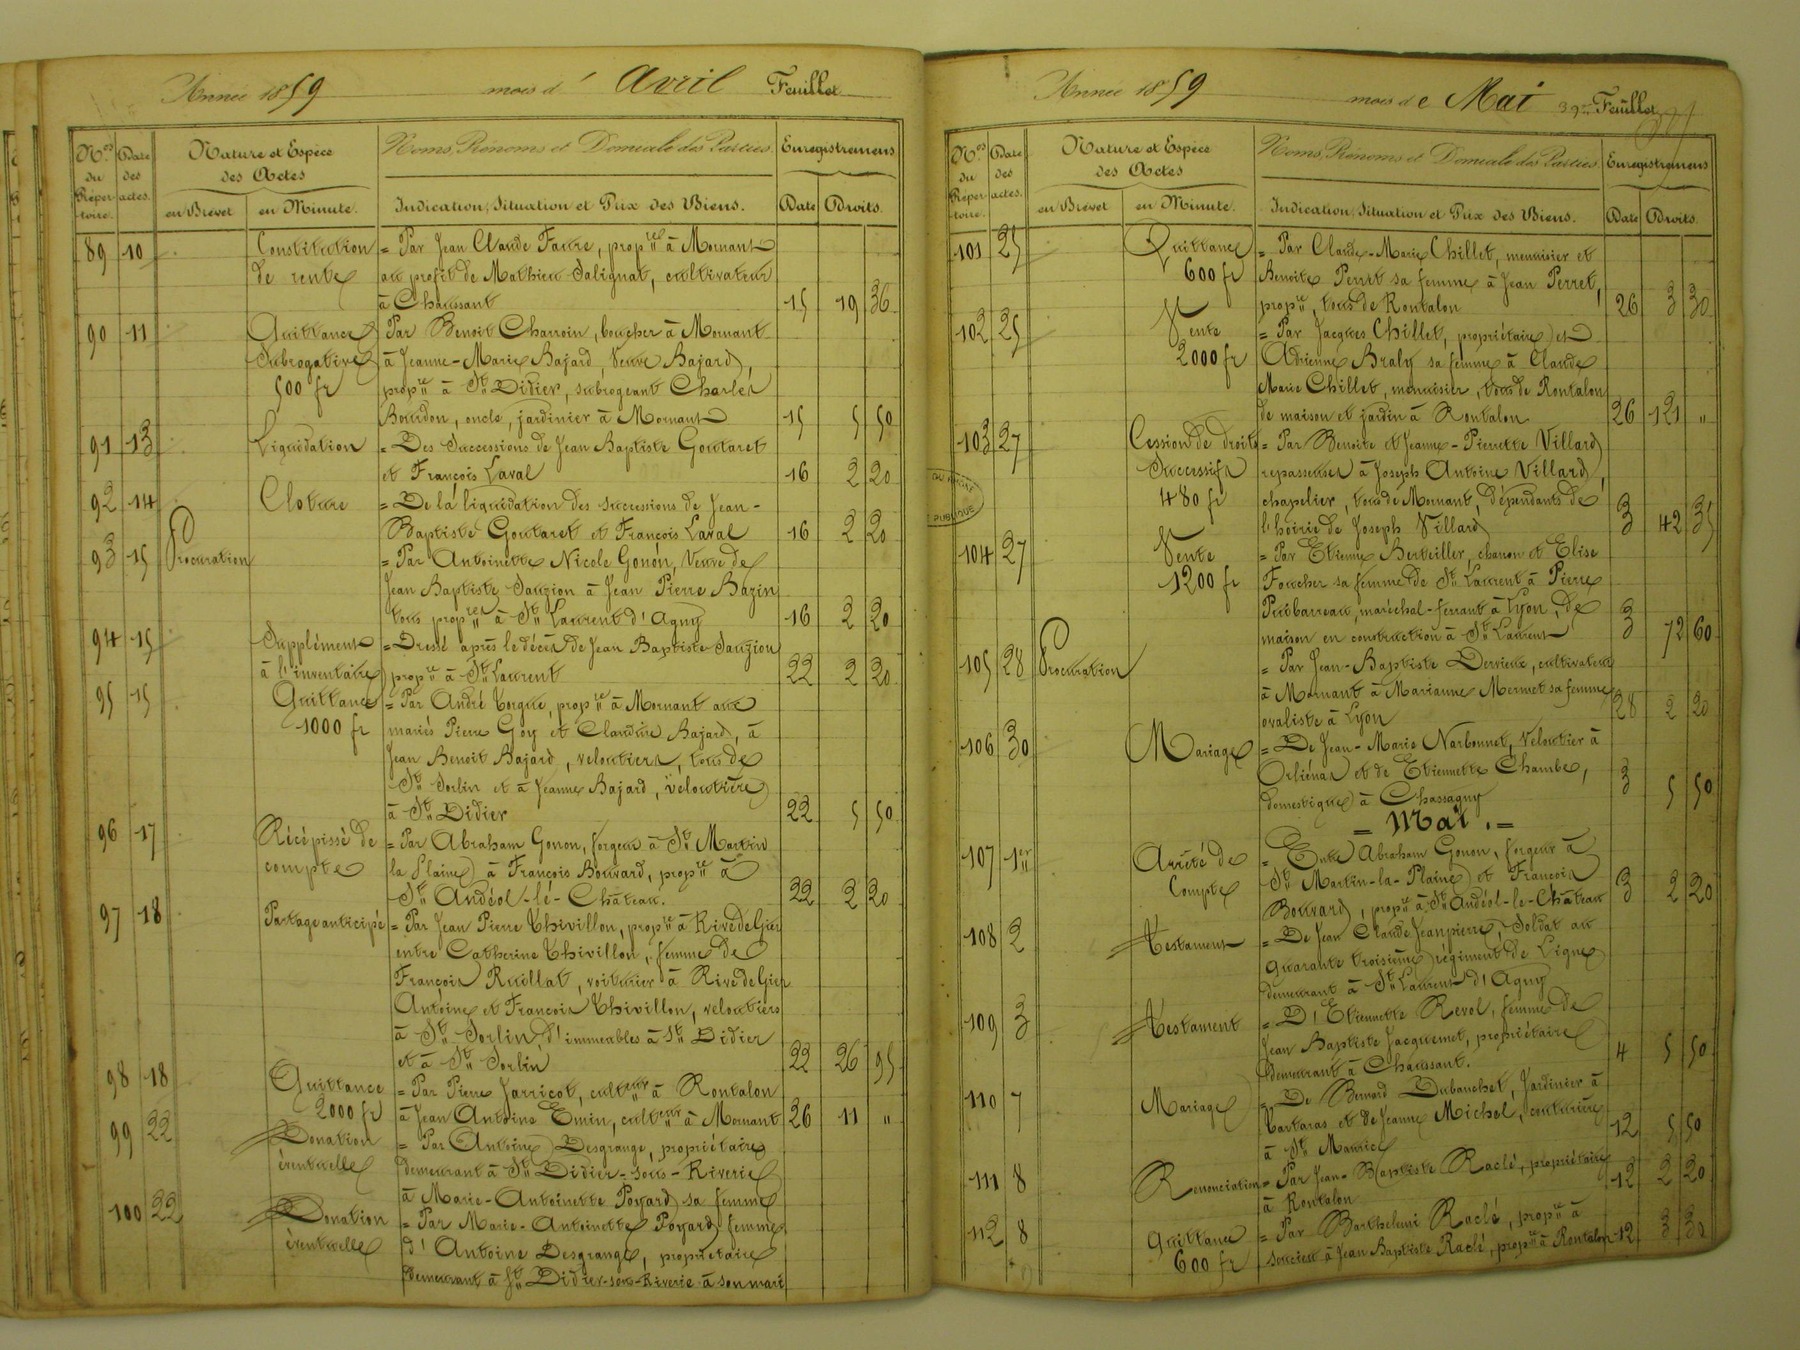 Année 1859 mois d' Avril Feuillet
Nos du Répertoire. Date des actes. Nature et Espèce des Actes Noms, Prénoms et Domicile des Parties. Enregistremens
en Brevet en Minute. Indication, Situation et Prix des Biens. Date Droits.
89 10 Constitution = Par Jean Claude Faure, propre à Mornant
de rente au profit de Mathieu Salignat, cultivateur
à Chaussant 15 19 36
90 11 Quittance Par Benoit Charroin, boucher à Mornant
Subrogative à Jeanne-Marie Bajard, Veuve Bajard,
500 fr propre à St Didier, subrogeant Charles
Bourdon, oncle, jardinier à Mornant 15 5 50
91 13 Liquidation = Des Successions de Jean Baptiste Goutaret
et François Laval 16 2 20
92 14 Cloture = De la liquidation des successions de Jean-
Baptiste Goutaret et François Laval 16 2 20
93 15 Procuration = Par Antoinette Nicole Gonon, Veuve de
Jean Baptiste Sauzion à Jean Pierre Bazin
tous propres à St Laurent d'Agny 16 2 20
94 15 Supplément = Dressé après le décès de Jean Baptiste Sauzion
à l'inventaire propre à St Laurent 22 2 20
95 15 Quittance = Par André Vorgue, propre à Mornant aux
1000 fr mariés Pierre Goy et Claudine Bajard, à
Jean Benoit Bajard, veloutiers, tous de
St Sorlin et à Jeanne Bajard, veloutière
à St Didier 22 5 50
96 17 Récépissé de = Par Abraham Gonon, forgeur à St Martin
compte la Plaine à François Bouvard, propre à
St Andéol-le-Château. 22 2 20
97 18 Partage anticipé = Par Jean Pierre Thivillon, propre à Rive de Gier
entre Catherine Thivillon, femme de
François Ruillat, voiturier à Rive de Gier
Antoine et François Thivillon, veloutiers
à St Sorlin, d'immeubles à St Didier
et à St Sorlin 22 26 95
98 18 Quittance = Par Pierre Jarricot, culteur à Rontalon
2000 fr à Jean Antoine Emin, culteur à Mornant 26 11 "
99 22 Donation = Par Antoine Desgrange, propriétaire
éventuelle demeurant à St Didier-sous-Riverie
à Marie-Antoinette Poyard sa femme
100 22 Donation = Par Marie-Antoinette Poyard femme
éventuelle d'Antoine Desgrange, propriétaire
demeurant à St Didier-sous-Riverie à son mari
Année 1859 mois de Mai 39me Feuillet
Nos du Répertoire. Date des actes. Nature et Espèce des Actes Noms, Prénoms et Domicile des Parties. Enregistremens
en Brevet en Minute. Indication, Situation et Prix des Biens. Date Droits.
101 25 Quittance = Par Claude-Marie Chillet, menuisier et
600 fr Benoite Perret sa femme à Jean Perret,
propre, tous de Rontalon 26 3 30
102 25 Vente = Par Jacques Chillet, propriétaire et
2000 fr Adrienne Braly sa femme à Claude
Marie Chillet, menuisier, tous de Rontalon
de maison et jardin à Rontalon 26 121 "
103 27 Cession de droits = Par Benoite et Jeanne-Pierrette Villard
Successifs repasseuses à Joseph Antoine Villard,
480 fr chapelier, tous de Mornant, dépendants de
l'hoirie de Joseph Villard 3 42 35
104 27 Vente = Par Etienne Berteiller, charron et Elise
1200 fr Foucher sa femme de St Laurent à Pierre
Puibarraau, maréchal-ferrant à Lyon, de
maison en construction à St Laurent 3 72 60
105 28 Procuration = Par Jean-Baptiste Derrieux, cultivateur
à Mornant à Marianne Mermet sa femme
ovaliste à Lyon 28 2 20
106 30 Mariage = De Jean-Marie Narbonnet, Veloutier à
Orliénas et de Etiennette Chambe,
domestique à Chassagny 3 5 50
= Mai. =
107 1er Arrêté de = Entre Abraham Gonon, forgeur à
Compte St Martin-la-Plaine et François
Bouvard, propre à St Andéol-le-Château 3 2 20
108 2 Testament = De Jean Claude Jeanpierre, Soldat au
quarante troisième régiment de Ligne
demeurant à St Laurent d'Agny
109 3 Testament = D'Etiennette Revol, femme de
Jean Baptiste Jacquemet, propriétaire
demeurant à Chaussant. 4 5 50
110 7 Mariage = De Bernard Dubanchet, Jardinier à
Tartaras et de Jeanne Michel, couturière
à St Maurice 12 5 50
111 8 Renonciation = Par Jean-Baptiste Raclé, propriétaire
à Rontalon 12 2 20
112 8 Quittance = Par Barthelemi Raclé, propre à
600 fr Soucieu à Jean Baptiste Raclé, propre à Rontalon 12 3 30
PUBLIQUE